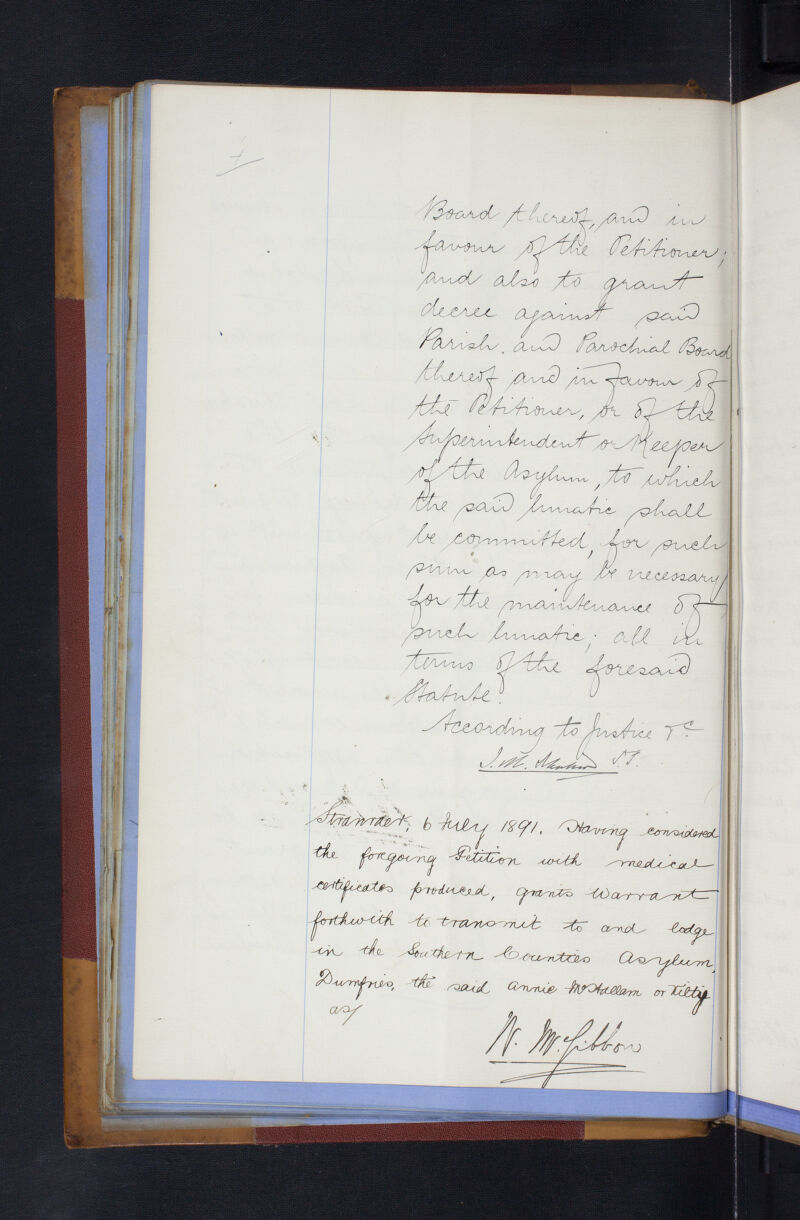 Board thereof, and in
favour of the Petitioner;
and also to grant
decree against said
Parish and Parochial Board
thereof and in favour of
the Petitioner, or of the
Superintendent or Keeper
of the Asylum, to which
the said lunatic shall
be committed, for such
sum as may be necessary
for the maintenance of
such lunatic; all in
terms of the foresaid
Statute.
According to Justice &c
J. M.
Stranraer, 6 July 1891. Having considered
the foregoing Petition with medical
certificates produced, grants Warrant
forthwith to transmit to and lodge
in the Southern Counties Asylum,
Dumfries, the said Annie McHallam or Kiltie
as/
W. McGibbon